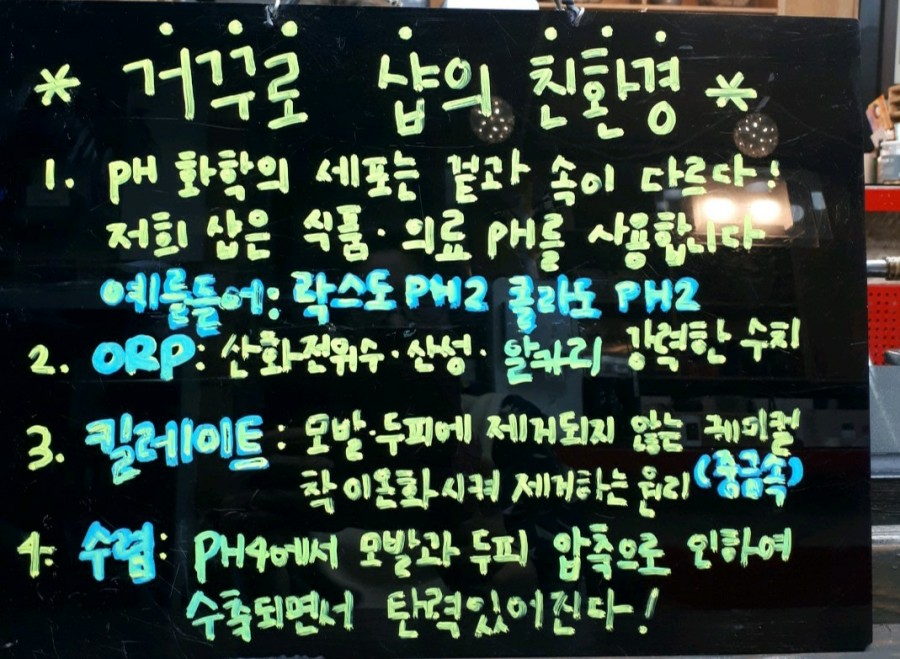 * 거꾸로 샵의 친환경 *
1. PH 화학의 세포는 겉과 속이 다르다!
저희 샵은 식품·의료 PH를 사용합니다
예를들어: 락스도 PH2 콜라도 PH2
2. ORP: 산화전위수·산성·알카리 강력한 수치
3. 킬레이트: 모발·두피에 제거되지 않는 케미컬
착이온화시켜 제거하는 원리 (중금속)
4. 수렴: PH4에서 모발과 두피 압축으로 인하여
수축되면서 탄력있어진다!